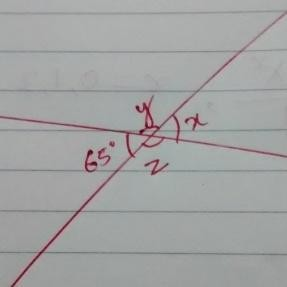 y
x
65°
z